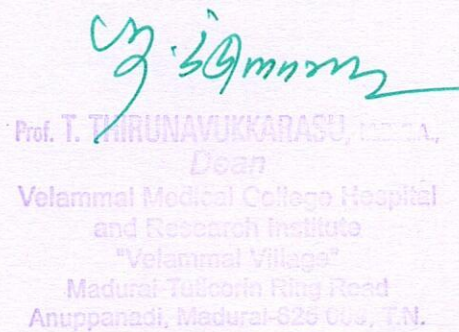 Prof. T. THIRUNAVUKKARASU,
Dean
Velammal Medical College Hospital
and Research Institute
"Velammal Village"
Madurai-Tuticorin Ring Road
Anuppanadi, Madurai-625 009, T.N.